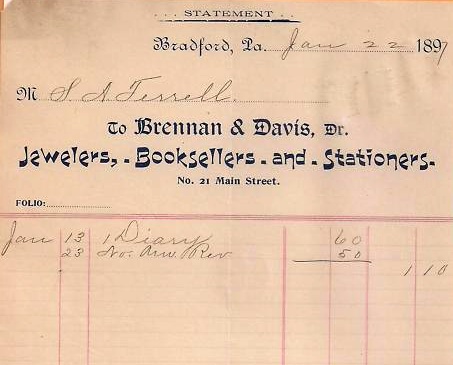 STATEMENT
Bradford, Pa. Jan 22 1897
M S A Terrell.
To Brennan & Davis, Dr.
Jewelers, - Booksellers - and - Stationers -
No. 21 Main Street.
FOLIO:
Jan 13 1 Diary 60
23 No. Am. Rev 50
1 10